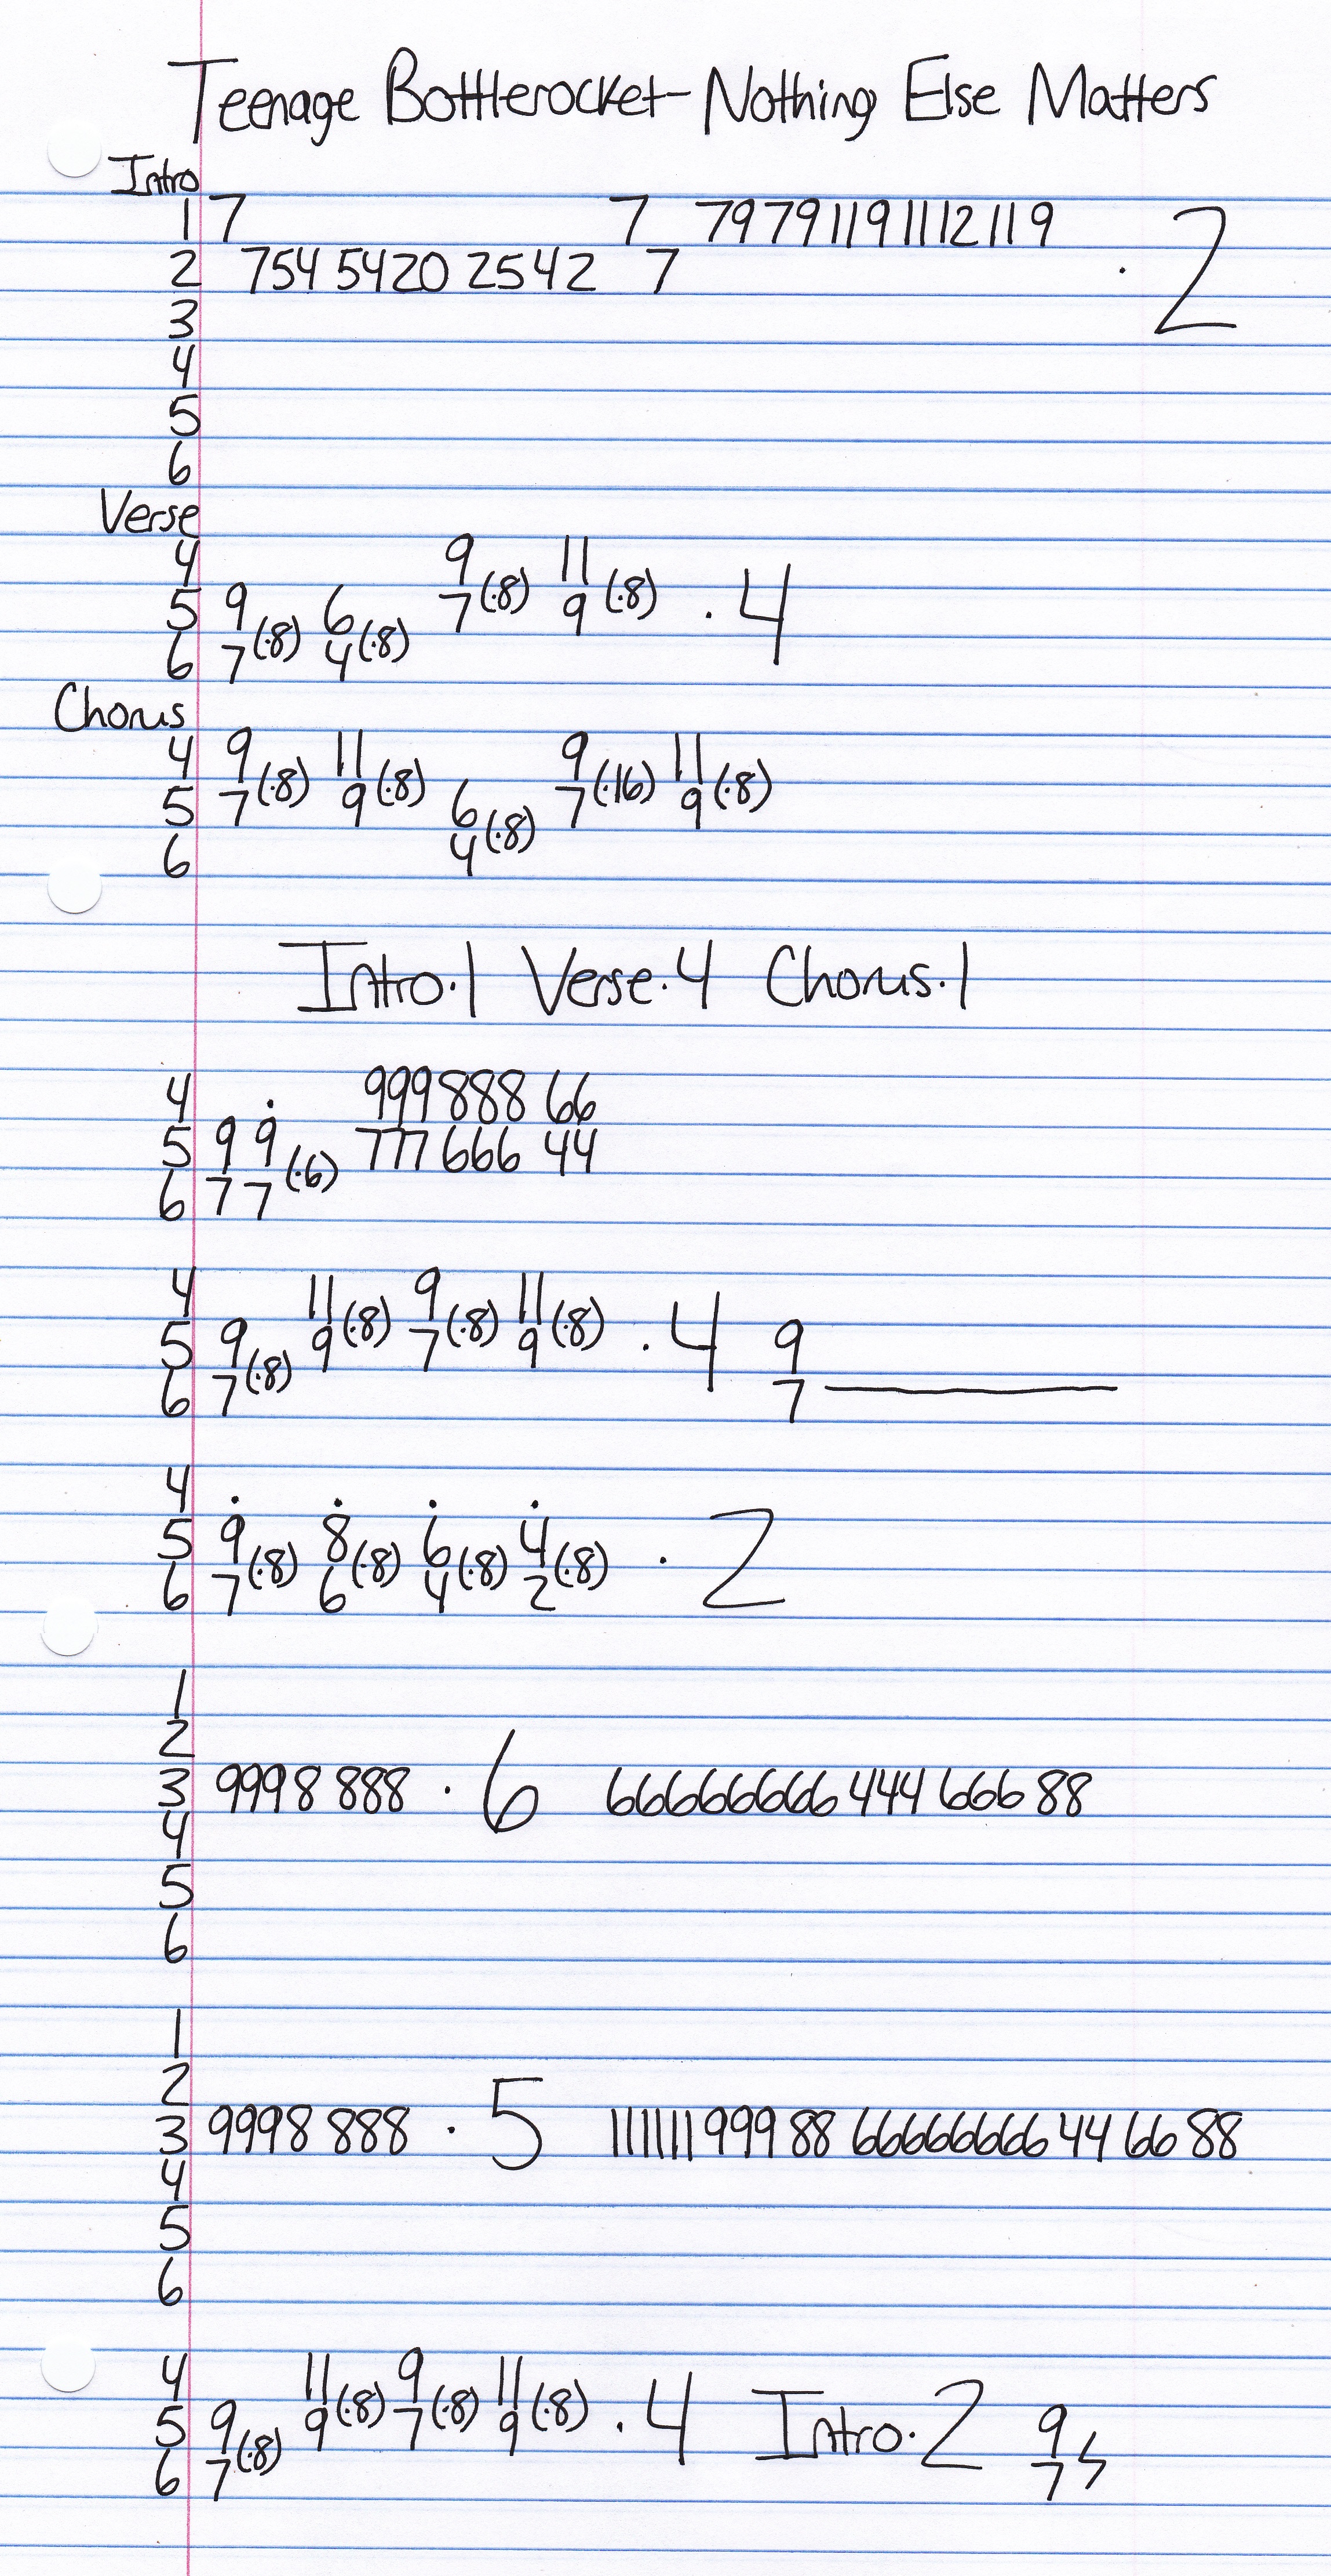 Teenage Bottlerocket-Nothing Else Matters
Intro
1 7 7 79 79 11 9 11 12 11 9
2 754 5420 2542 7 . 2
3
4
5
6
Verse
4 9 11
5 9 6 7(·8) 9(·8) . 4
6 7(·8) 4(·8)
Chorus
4 9 11 9 11
5 7(·8) 9(·8) 6 7(·16) 9(·8)
6 4(·8)
Intro·1 Verse·4 Chorus·1
4 . 999 888 66
5 9 9 777 666 44
6 7 7(·6)
4 11 9 11
5 9 9(·8) 7(·8) 9(·8) . 4 9
6 7(·8) 7
4 . . . .
5 9 8 6 4 . 2
6 7(·8) 6(·8) 4(·8) 2(·8)
1
2
3 9998 888 · 6 66666666 444 666 88
4
5
6
1
2
3 9998 888 · 5 111111 999 88 66666666 44 66 88
4
5
6
4 11 9 11
5 9 9(·8) 7(·8) 9(·8) . 4 Intro·2 9
6 7(·8) 7